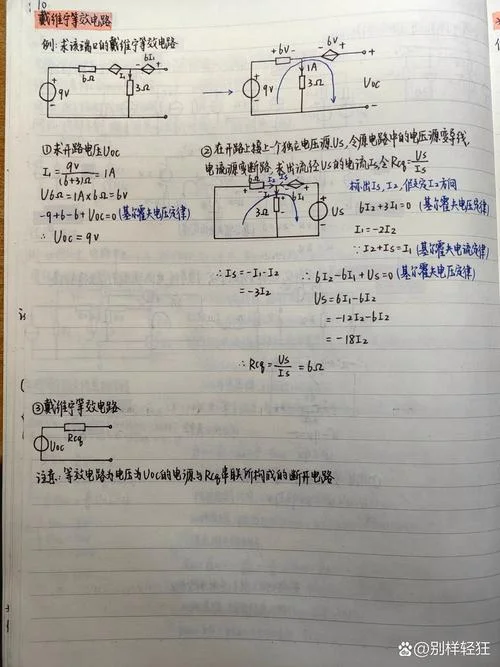 10
戴维宁等效电路
例:求该端口的戴维宁等效电路
6Ω I₁ 6I₁ 3Ω 9V
+6V- -6V+ 1A 3Ω 9V Uoc
①求开路电压Uoc
I₁=9V/(6+3)Ω=1A
U6Ω=1A×6Ω=6V
-9+6-6+Uoc=0(基尔霍夫电压定律)
∴ Uoc=9V
②在开路上接上一个独立电压源Us,令原电路中的电压源变导线,
电流源变断路,求出流经Us的电流Is,令Req=Us/Is
6Ω I₂ Is 6I₁ 3Ω Us
标出Is,I₂,假定I₂方向
6I₂+3I₁=0(基尔霍夫电压定律)
I₁=-2I₂
∵I₂+Is=I₁(基尔霍夫电流定律)
∴Is=-I₁-I₂
=-3I₂
∴6I₂-6I₁+Us=0(基尔霍夫电压定律)
Us=6I₁-6I₂
=-12I₂-6I₂
=-18I₂
∴Req=Us/Is=6Ω
③戴维宁等效电路
Req
Uoc
注意:等效电路为电压为Uoc的电源与Req串联所构成的断开电路
头条@别样轻狂